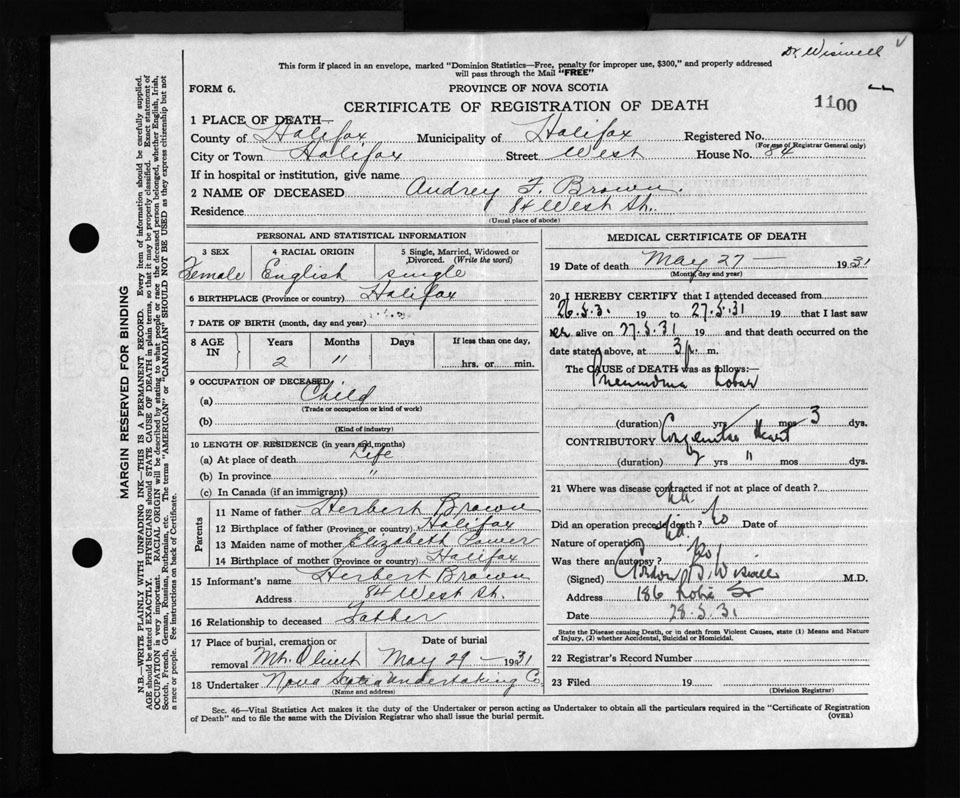 Dr. Wiswell
This form if placed in an envelope, marked "Dominion Statistics—Free, penalty for improper use, $300," and properly addressed
will pass through the Mail "FREE"
FORM 6.
PROVINCE OF NOVA SCOTIA
CERTIFICATE OF REGISTRATION OF DEATH
1100
1 PLACE OF DEATH—
County of Halifax Municipality of Halifax Registered No.
(For use of Registrar General only)
City or Town Halifax Street West House No. 84
If in hospital or institution, give name
2 NAME OF DECEASED Audrey F. Brown.
Residence 84 West St.
(Usual place of abode)
PERSONAL AND STATISTICAL INFORMATION
3 SEX 4 RACIAL ORIGIN 5 Single, Married, Widowed or
Divorced. (Write the word)
Female English single
6 BIRTHPLACE (Province or country) Halifax
7 DATE OF BIRTH (month, day and year)
8 AGE IN Years Months Days If less than one day,
2 11 hrs. or min.
9 OCCUPATION OF DECEASED
(a) Child
(Trade or occupation or kind of work)
(b)
(Kind of industry)
10 LENGTH OF RESIDENCE (in years and months)
(a) At place of death Life
(b) In province "
(c) In Canada (if an immigrant)
Parents
11 Name of father Herbert Brown
12 Birthplace of father (Province or country) Halifax
13 Maiden name of mother Elizabeth Power
14 Birthplace of mother (Province or country) Halifax
15 Informant's name Herbert Brown
Address 84 West St.
16 Relationship to deceased Father
17 Place of burial, cremation or Date of burial
removal Mt. Olivet May 29 — 1931
18 Undertaker Nova Scotia Undertaking Co
(Name and address)
MEDICAL CERTIFICATE OF DEATH
19 Date of death May 27 — 1931
(Month, day and year)
20 I HEREBY CERTIFY that I attended deceased from
26.5.3. 19 to 27.5.31 19 that I last saw
her alive on 27.5.31 19 and that death occurred on the
date stated above, at 3 p. m.
The CAUSE of DEATH was as follows:—
Pneumonia Lobar
(duration) yrs mos 3 dys.
CONTRIBUTORY Congenital Heart
(duration) 2 yrs 11 mos dys.
21 Where was disease contracted if not at place of death?
Did an operation precede death? No Date of
Nature of operation
Was there an autopsy? No
(Signed) Gordon B. Wiswell M.D.
Address 186
Date 28.5.31
State the Disease causing Death, or in death from Violent Causes, state (1) Means and Nature
of Injury, (2) whether Accidental, Suicidal or Homicidal.
22 Registrar's Record Number
23 Filed 19
(Division Registrar)
Sec. 46—Vital Statistics Act makes it the duty of the Undertaker or person acting as Undertaker to obtain all the particulars required in the "Certificate of Registration
of Death" and to file the same with the Division Registrar who shall issue the burial permit.
(OVER)
MARGIN RESERVED FOR BINDING
N.B.—WRITE PLAINLY WITH UNFADING INK—THIS IS A PERMANENT RECORD. Every item of information should be carefully supplied.
AGE should be stated EXACTLY. PHYSICIANS should STATE CAUSE OF DEATH in plain terms, so that it may be properly classified. Exact statement of
OCCUPATION is very important. RACIAL ORIGIN will be described by stating to what people or race the deceased person belonged, whether English, Irish,
Scotch, French, German, Russian, Ruthenian, etc. The terms "AMERICAN" or "CANADIAN" SHOULD NOT BE USED as they express citizenship but not
a race or people. See instructions on back of Certificate.